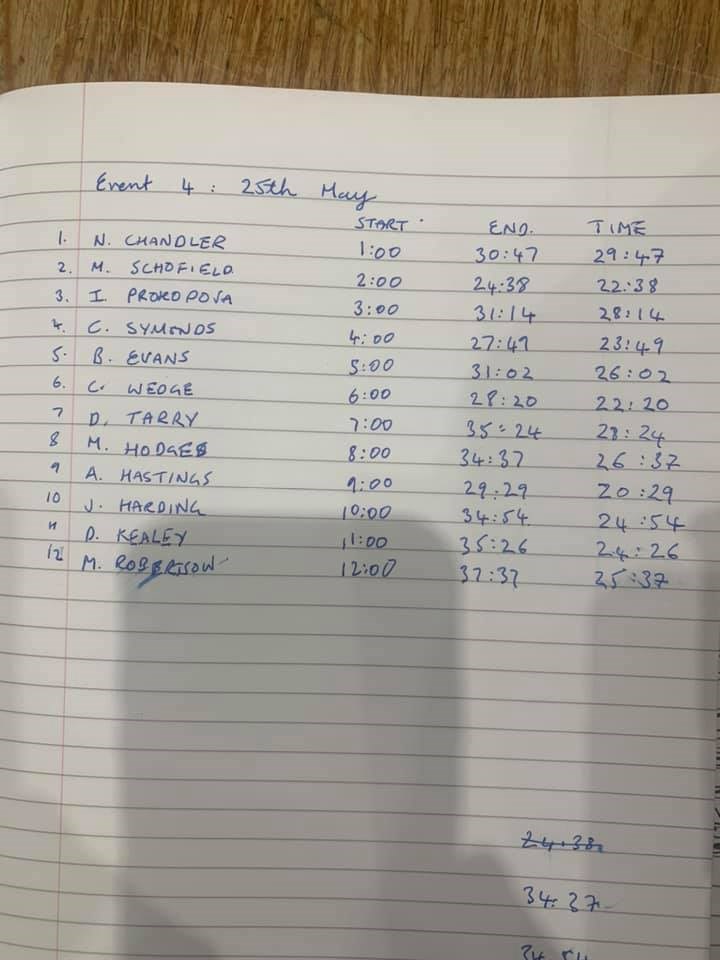 Event 4 : 25th May
START END. TIME
1. N. CHANDLER 1:00 30:47 29:47
2. M. SCHOFIELD 2:00 24:38 22:38
3. I PROKOPOVA 3:00 31:14 28:14
4. C. SYMONDS 4:00 27:49 23:49
5. B. EVANS 5:00 31:02 26:02
6. C. WEDGE 6:00 28:20 22:20
7 D. TARRY 7:00 35:24 28:24
8 M. HODGES 8:00 34:37 26:37
9 A. HASTINGS 9:00 29:29 20:29
10 J. HARDING 10:00 34:54 24:54
11 D. KEALEY 11:00 35:26 24:26
12 M. ROBERTSON 12:00 37:37 25:37
24:38
34:37